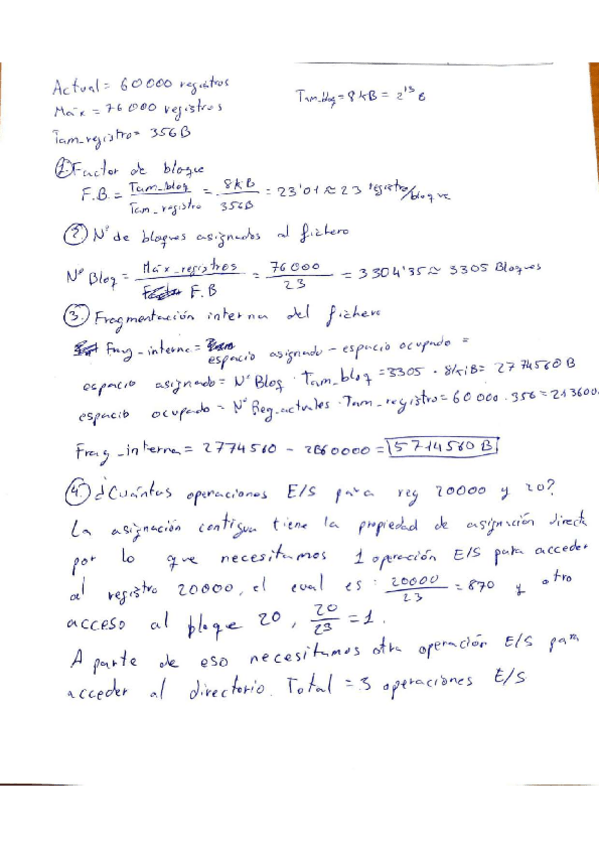 Actual = 60000 registros
Máx = 76000 registros
Tam_registro = 356B
Tam_bloq = 8kB = 2¹³ B
1. Factor de bloque
F.B. = Tam_bloq / Tam_registro = 8kB / 356B = 23'01 ≈ 23 registro/bloque
2. Nº de bloques asignados al fichero
Nº Bloq = Máx_registros / F.B = 76000 / 23 = 3304'35 ≈ 3305 Bloques
3. Fragmentación interna del fichero
Frag_interna = espacio asignado - espacio ocupado =
espacio asignado = Nº Bloq · Tam_bloq = 3305 · 8kiB = 2774560 B
espacio ocupado = Nº Reg_actuales · Tam_registro = 60000 · 356 = 213600
Frag_interna = 2774560 - 2860000 = 5714560 B
4. ¿Cuántas operaciones E/S para reg 20000 y 20?
La asignación contigua tiene la propiedad de asignación directa
por lo que necesitamos 1 operación E/S para acceder
al registro 20000, el cual es: 20000 / 23 = 870 y otro
acceso al bloque 20, 20 / 23 = 1.
A parte de eso necesitamos otra operación E/S para
acceder al directorio. Total = 3 operaciones E/S